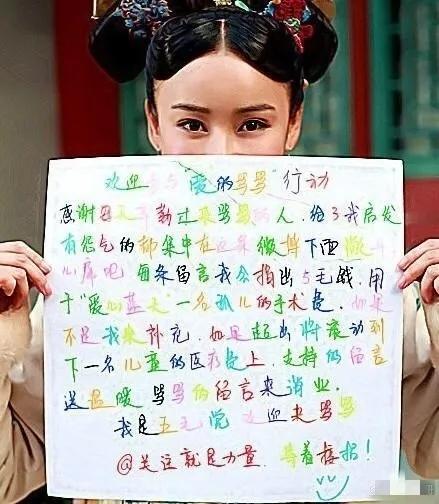 欢迎参与"爱的骂骂"行动
感谢每天辛勤过来骂骂的人.给了我启发
有怨气的都集中在这条微博下面
心库吧 每条留言我会捐出5毛钱.用
于"爱心蓝天"一名孤儿的手术是.如果
不足我来补充.如果超出将滚动到
下一名儿童的医疗上.支持的留言
送温暖 骂骂的留言来消业.
我是五毛党 欢迎来骂骂
@关注就是力量.等着接招!